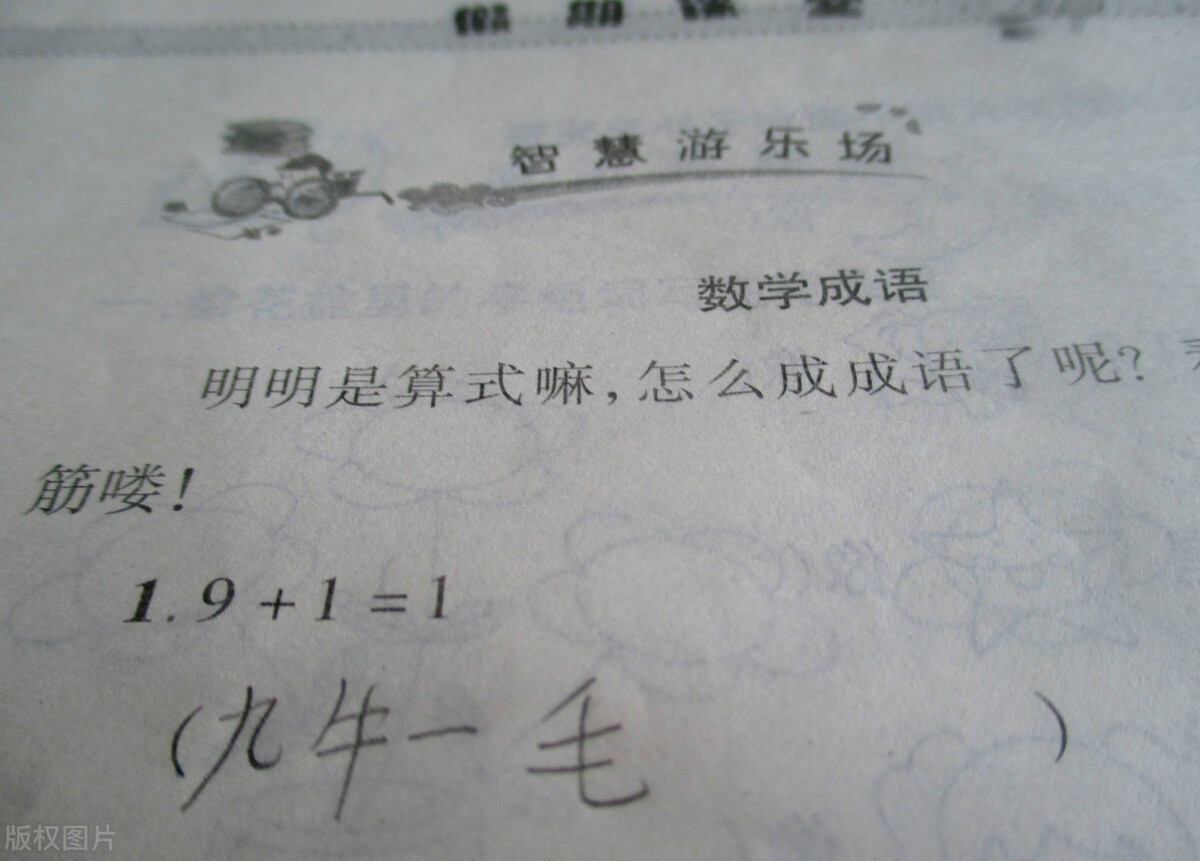 智慧游乐场
数学成语
明明是算式嘛,怎么成成语了呢?
筋喽!
1.9+1=1
(九牛一毛)
版权图片